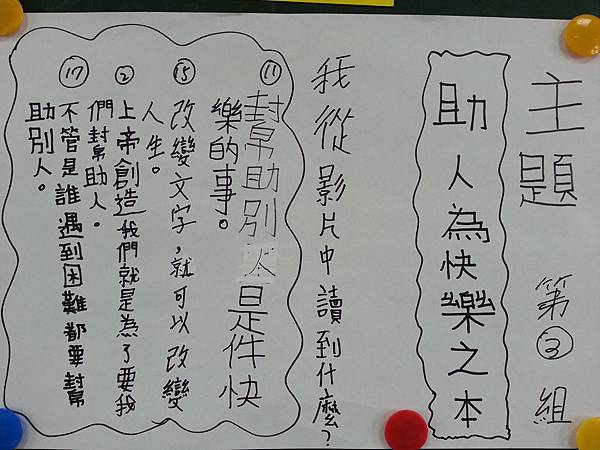 主題 第③組
助人為快樂之本
我從影片中讀到什麼？
⑪幫助別人是件快
樂的事。
⑮改變文字，就可以改變
人生。
②上帝創造我們就是為了要我
們幫助人。
⑰不管是誰遇到困難都要幫
助別人。